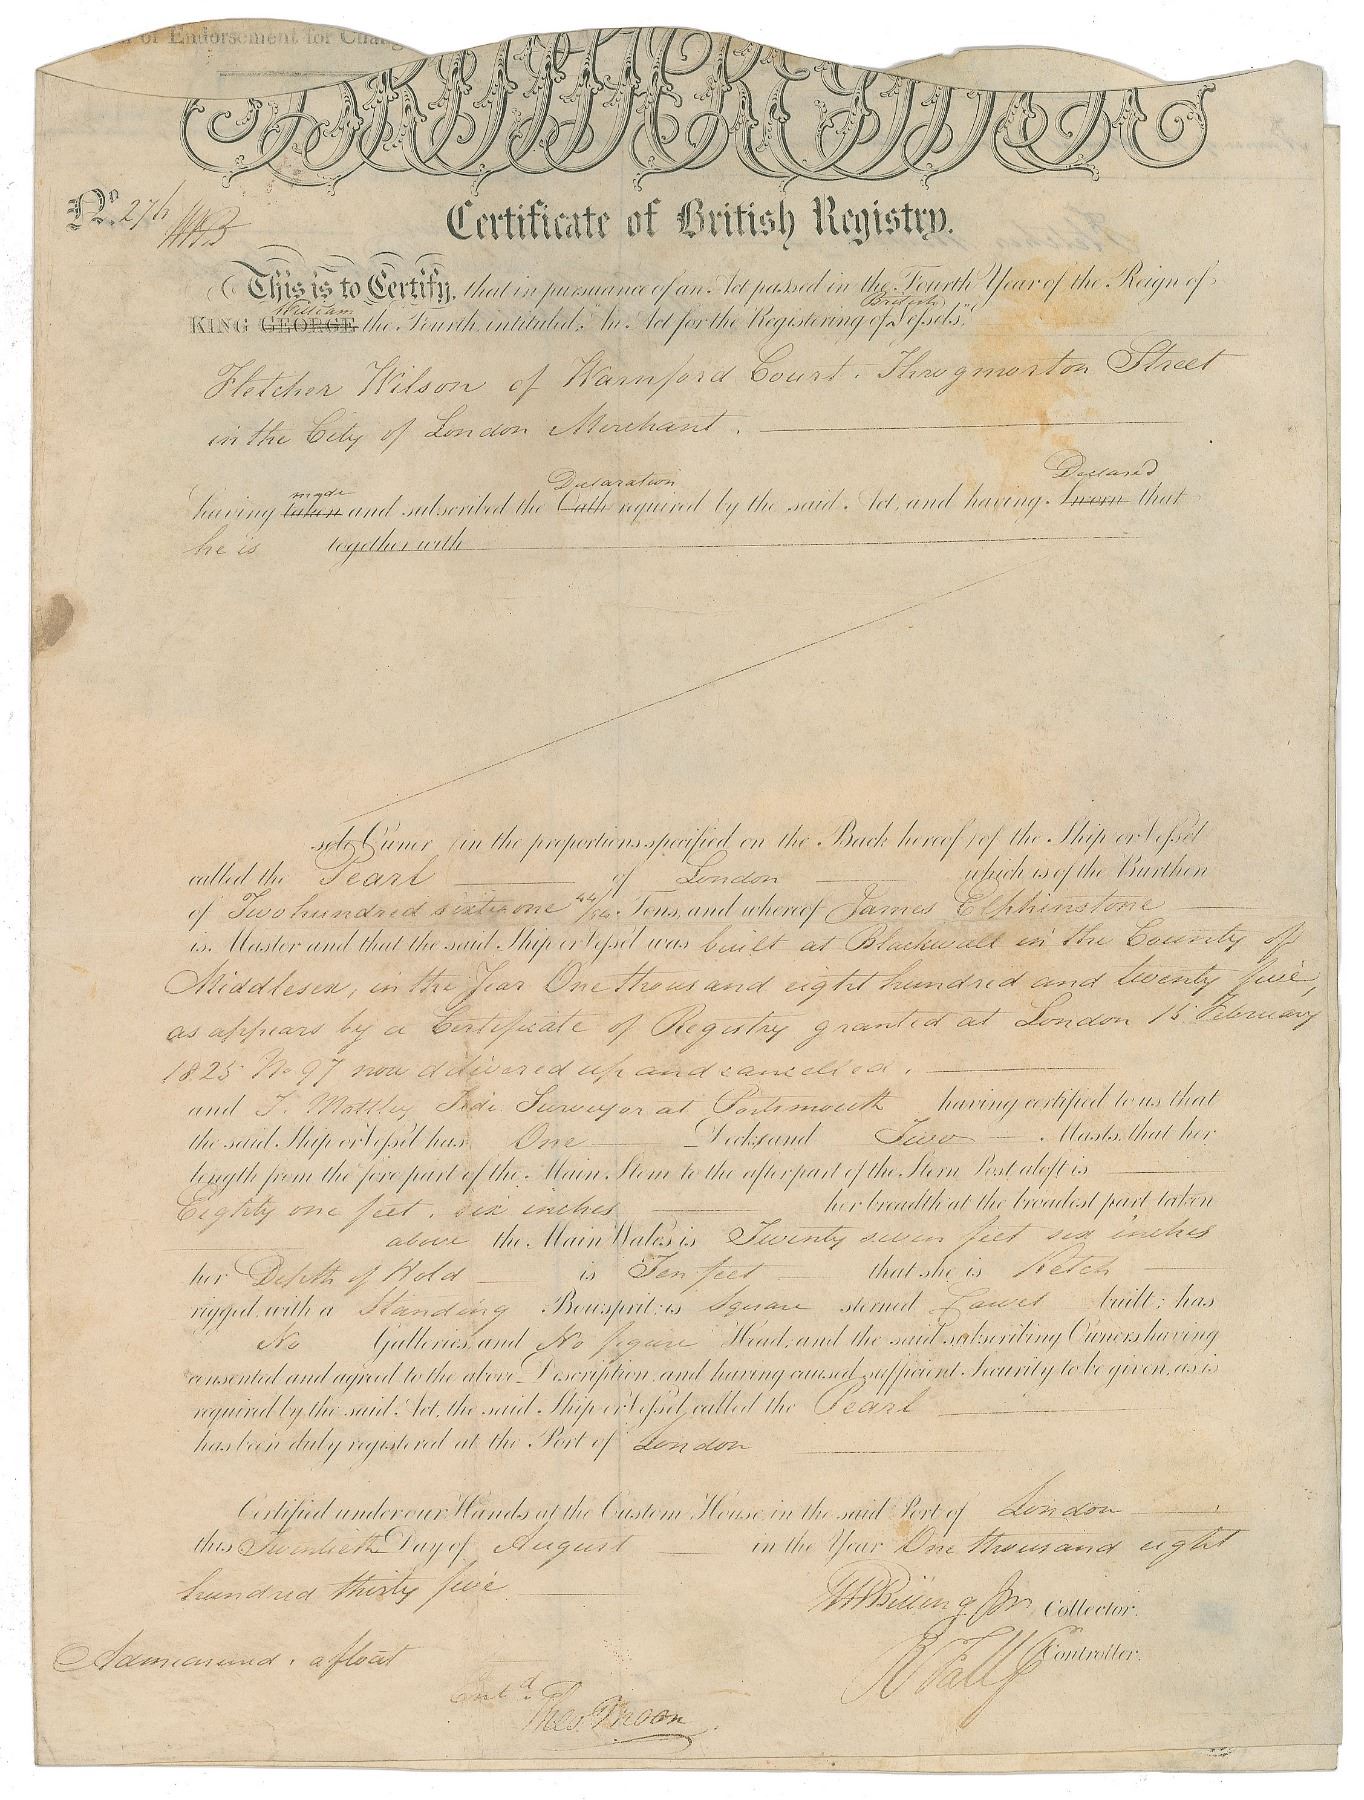 of Endorsement for Chang
No. 276
Certificate of British Registry.
This is to Certify, that in pursuance of an Act passed in the Fourth Year of the Reign of
William British
KING GEORGE the Fourth, intituled, "An Act for the Registering of Vessels,"
Fletcher Wilson of Warnford Court. Throgmorton Street
in the City of London Merchant.
made Declaration Declared
having taken and subscribed the Oath required by the said Act, and having sworn that
he is together with
sole Owner (in the proportions specified on the Back hereof) of the Ship or Vessel
called the Pearl of London which is of the Burthen
of Two hundred sixty one 44/94 Tons, and whereof James Elphinstone
is Master and that the said Ship or Vessel was built at Blackwall in the County of
Middlesex, in the Year One thousand eight hundred and twenty five,
as appears by a Certificate of Registry granted at London 15 February
1825 No 97 now delivered up and cancelled.
and T. Mottley Tide Surveyor at Portsmouth having certified to us that
the said Ship or Vessel has One Decks and Two Masts, that her
length from the fore part of the Main Stem to the after part of the Stern Post aloft is
Eighty one feet. six inches her breadth at the broadest part taken
above the Main Wales is Twenty seven feet six inches
her Depth of Hold is Ten feet that she is Ketch
rigged with a Standing Bowsprit; is Square sterned Carvel built; has
No Galleries, and No figure Head; and the said subscribing Owners having
consented and agreed to the above Description, and having caused sufficient Security to be given, as is
required by the said Act, the said Ship or Vessel called the Pearl
has been duly registered at the Port of London
Certified under our Hands, at the Custom House, in the said Port of London
this Twentieth Day of August in the Year One thousand eight
hundred thirty five
Collector.
Controller.
Admeasured. afloat
Entd.
Thos.